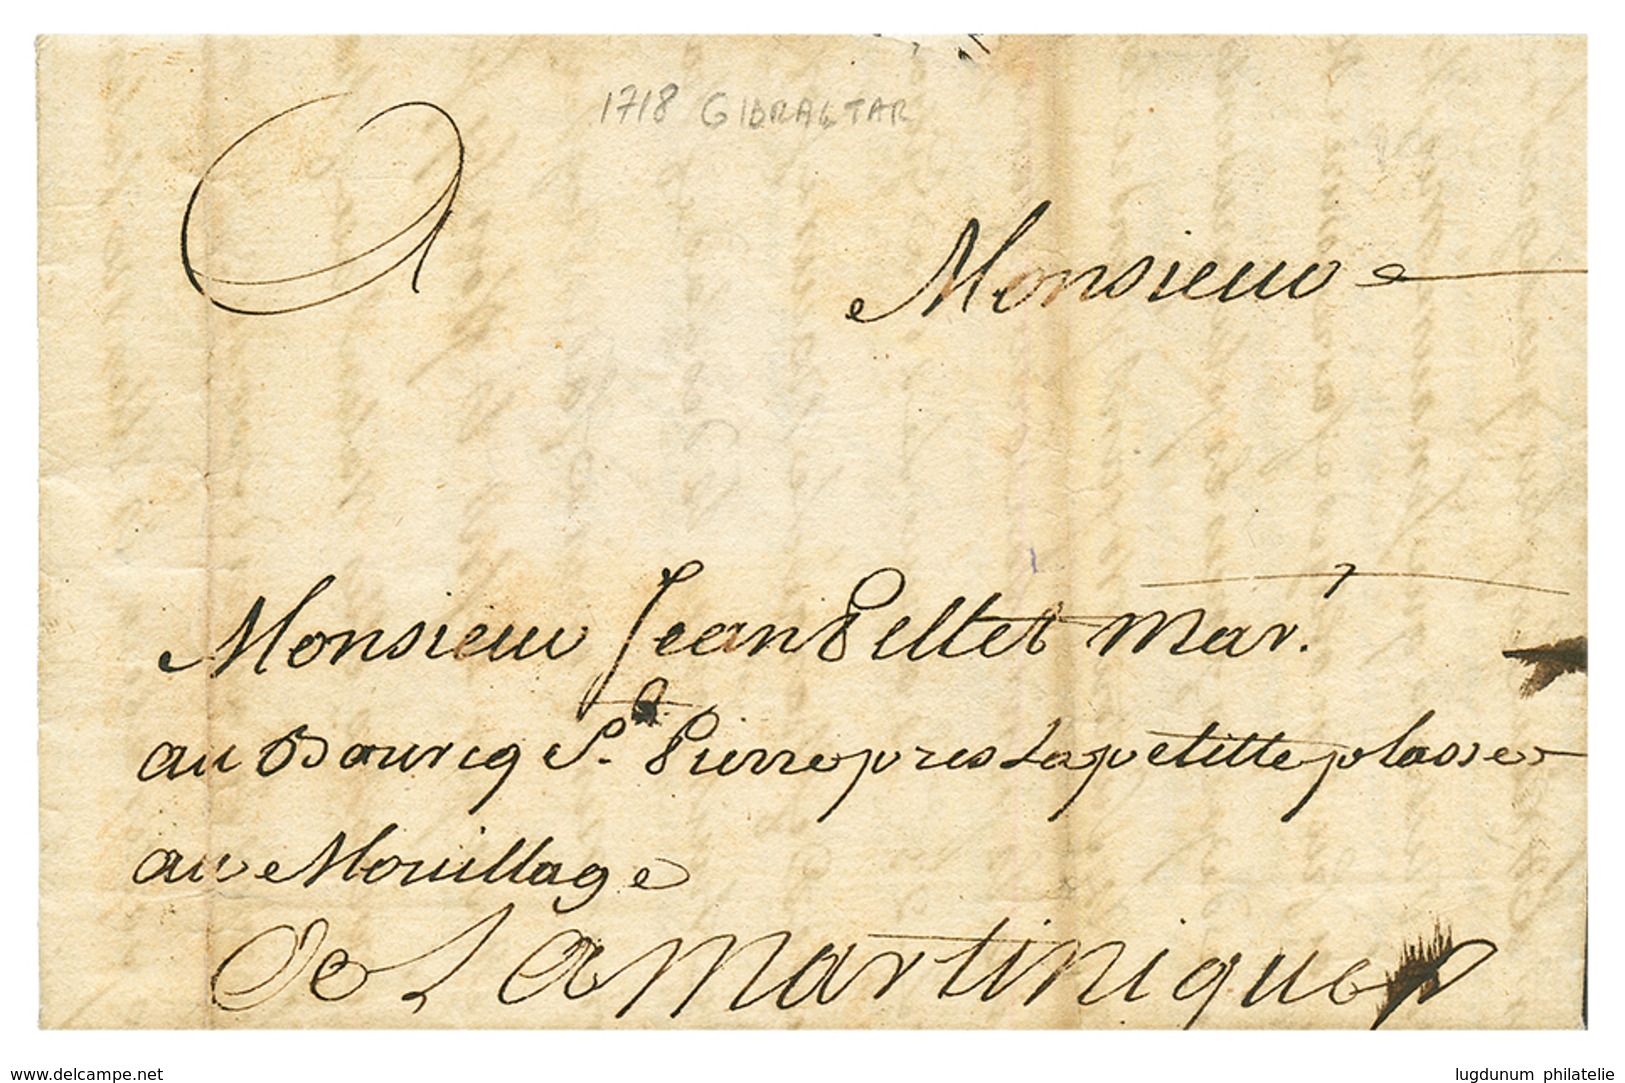 1718 GIBRALTAR
A
Monsieur
Monsieur Jean Peltet Mar.
au Bourcq St. Pierre pres La petitte plasse
au Mouillage
De La Martinique
www.delcampe.net
lugdunum philatelie